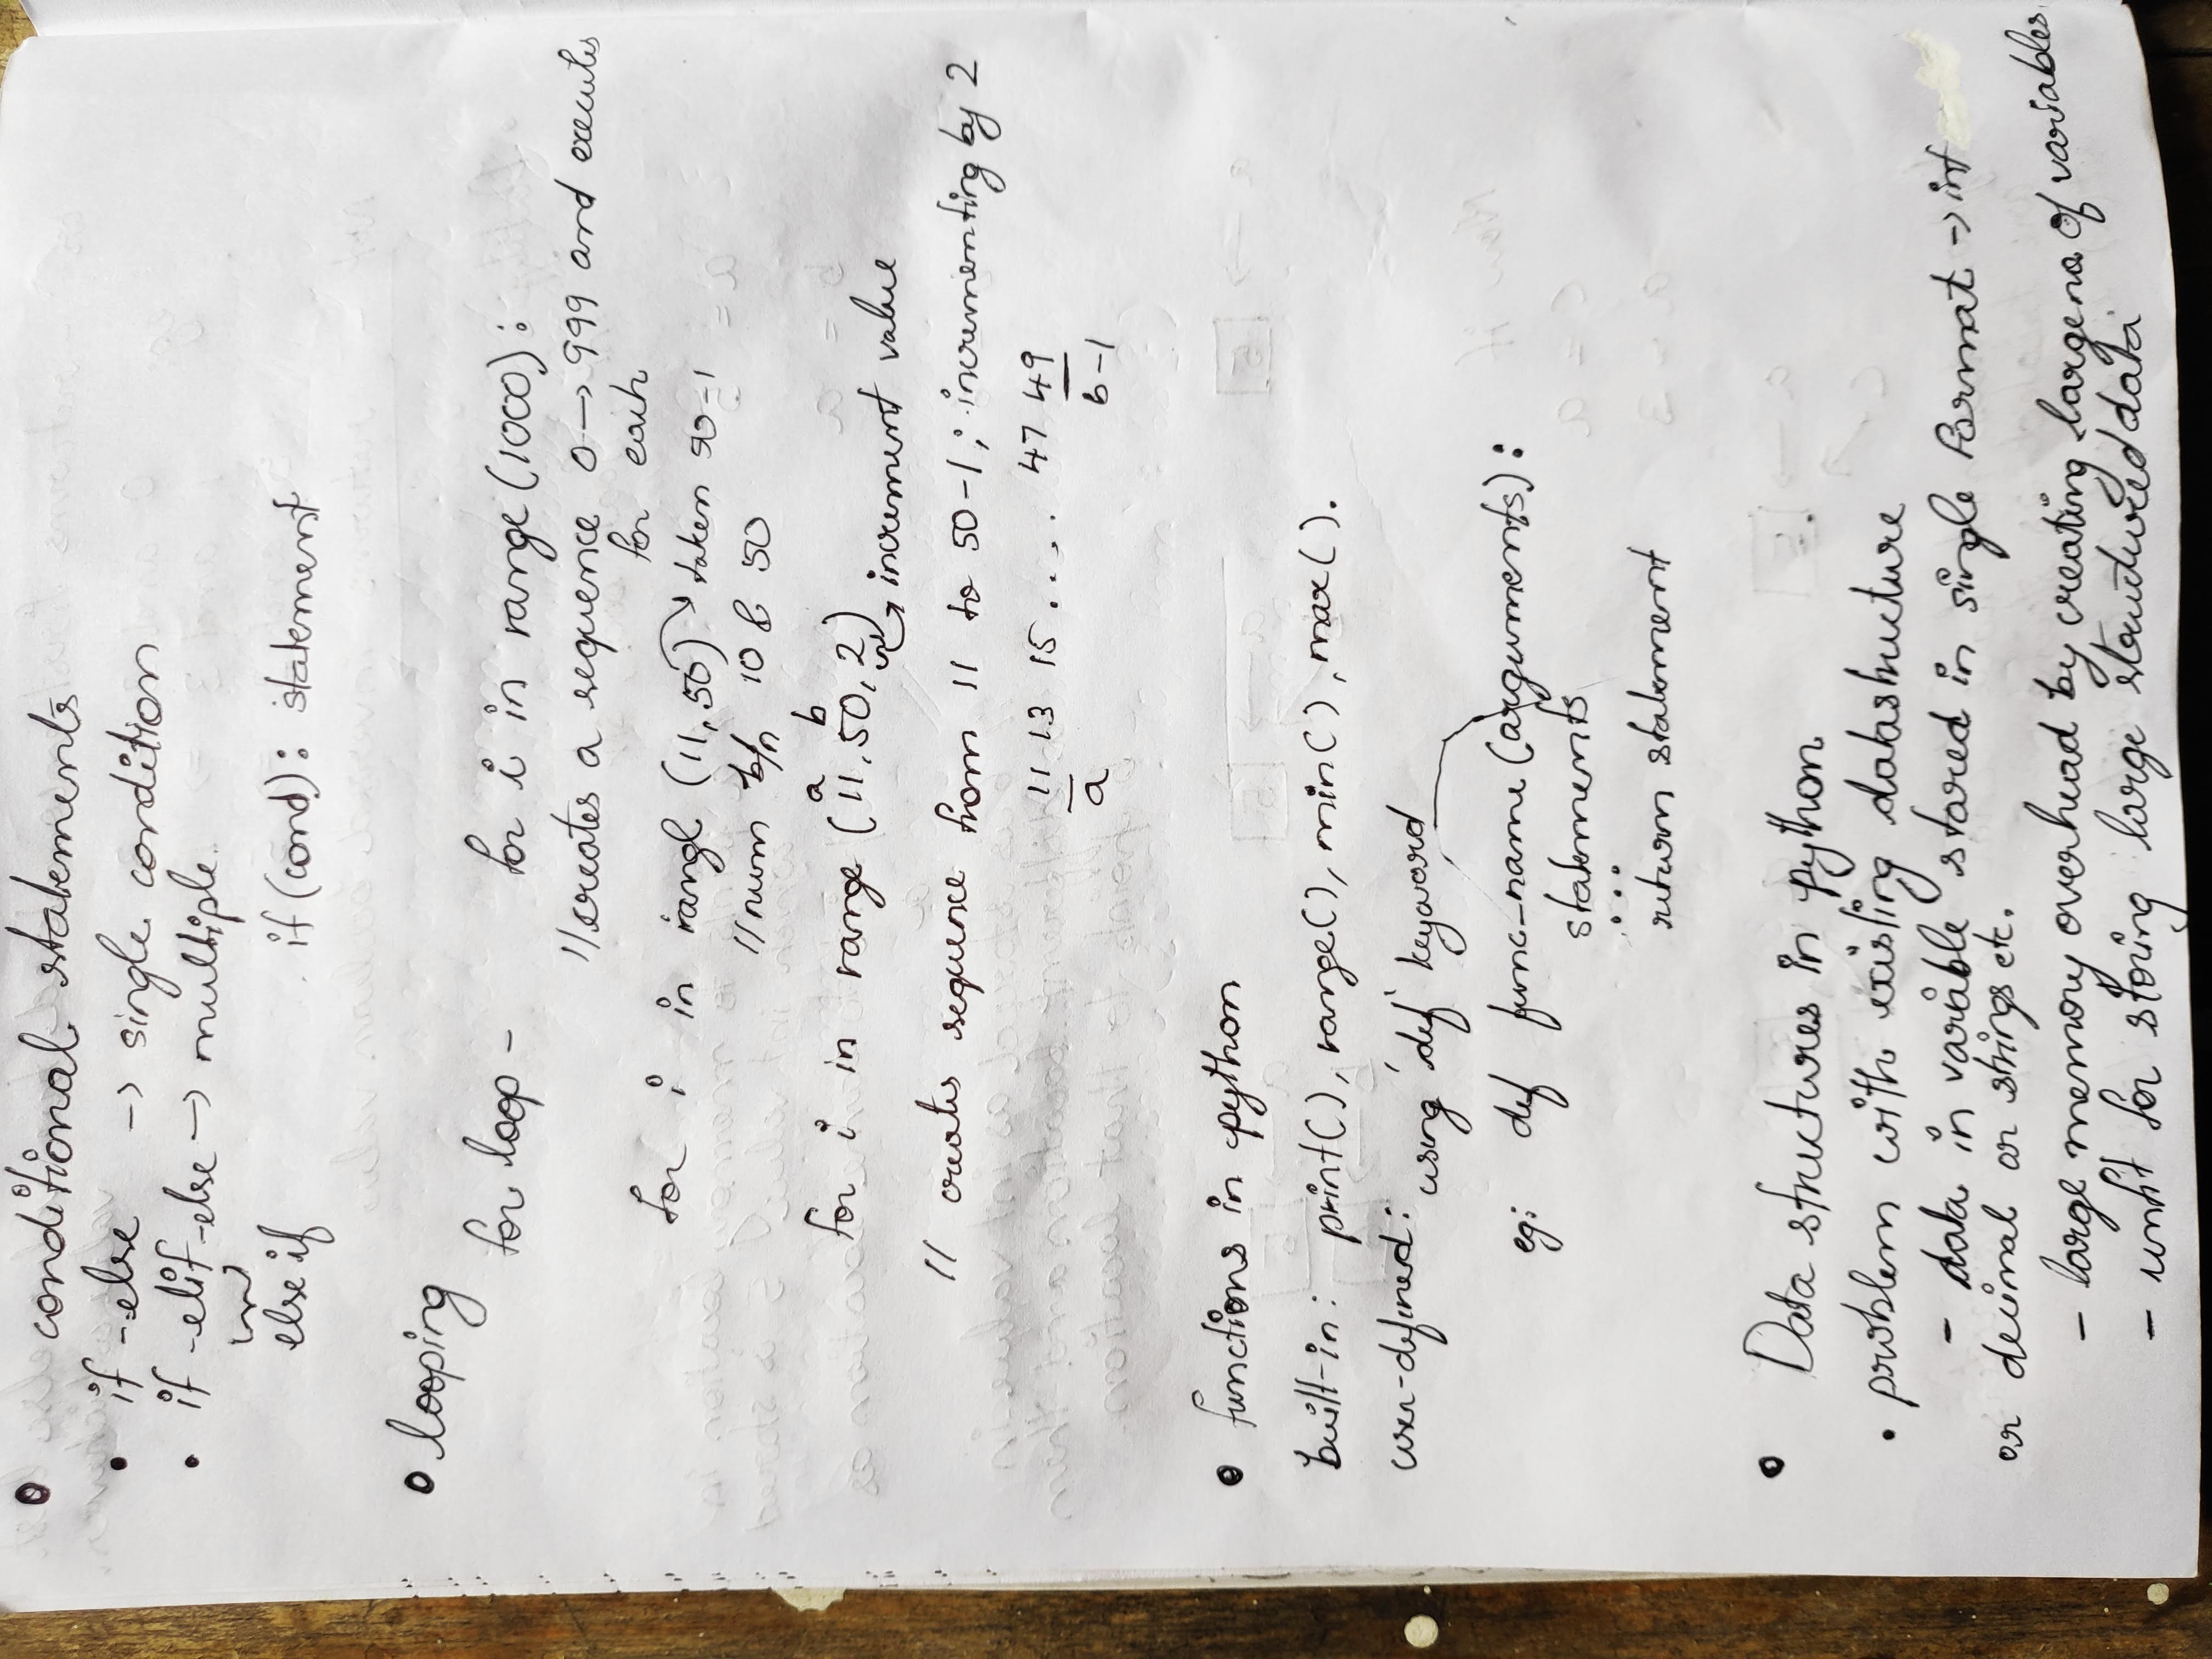 conditional statements
• if - else -> single condition
• if - elif - else -> multiple
else if
if (cond) : statement
looping
for loop - for i in range (1000) :
// creates a sequence 0 -> 999 and executes
for each
for i in range (11, 50) taken 50-1
// num b/n 10 & 50
a b
for i in range (11, 50, 2)
increment value
// creates sequence from 11 to 50-1 ; incrementing by 2
11 13 15 . . . . 47 49
a b-1
functions in python
built-in : print( ), range( ), min( ), max( ).
user-defined : using 'def' keyword
eg: def func_name (arguments) :
statements
...
return statement
Data structures in python
• problem with existing datastructure
- data in variable stored in single format -> int
or decimal or strings etc.
- large memory overhead by creating large no of variables
- unfit for storing large structured data